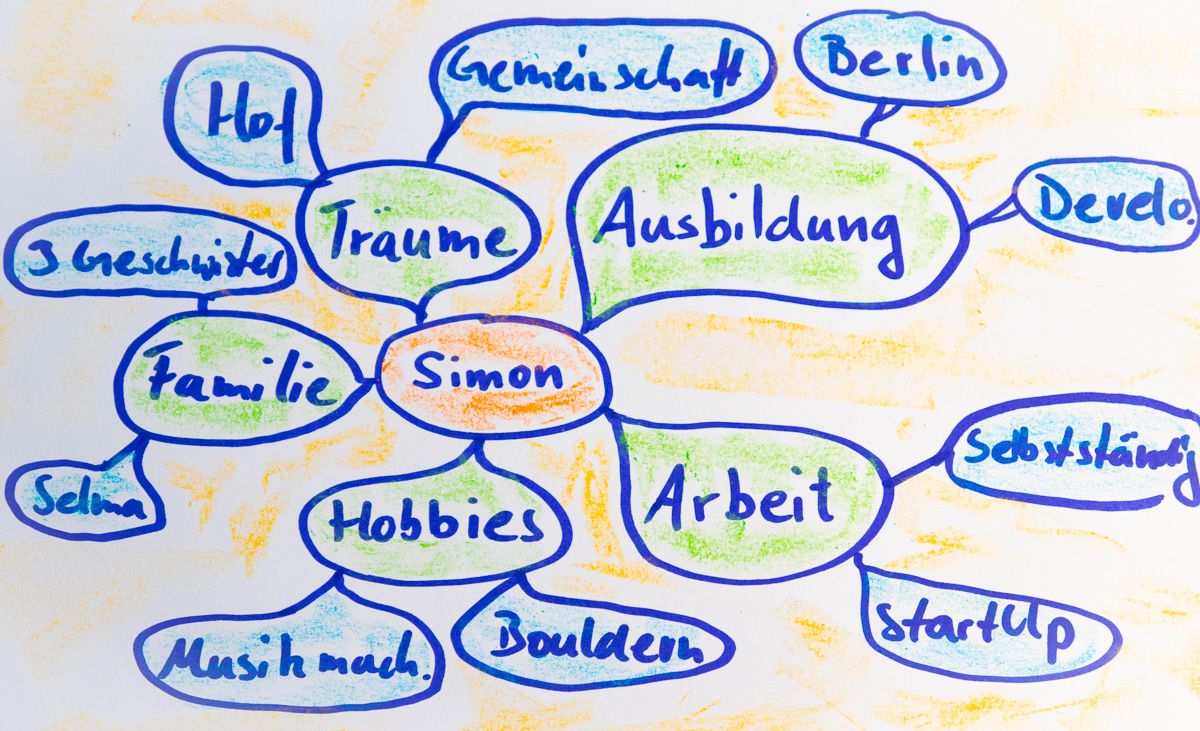 Berlin
Gemeinschaft
Hof
Develo.
Ausbildung
Träume
3 Geschwister
Simon
Familie
Selbstständig
Selma
Arbeit
Hobbies
StartUp
Bouldern
Musik mach.